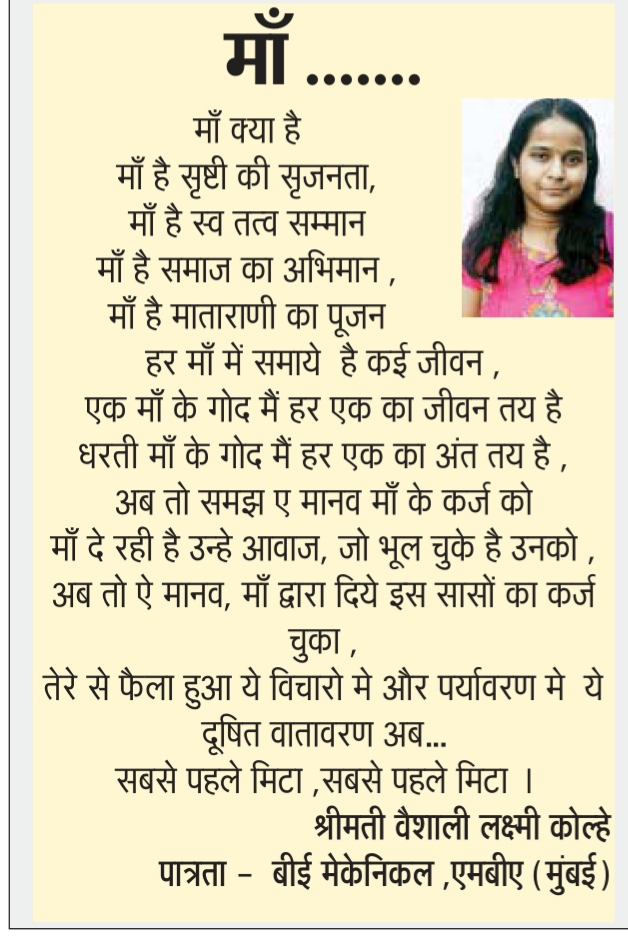 माँ .......
माँ क्या है
माँ है सृष्टी की सृजनता,
माँ है स्व तत्व सम्मान
माँ है समाज का अभिमान ,
माँ है माताराणी का पूजन
हर माँ में समाये है कई जीवन ,
एक माँ के गोद मैं हर एक का जीवन तय है
धरती माँ के गोद मैं हर एक का अंत तय है ,
अब तो समझ ए मानव माँ के कर्ज को
माँ दे रही है उन्हे आवाज, जो भूल चुके है उनको ,
अब तो ऐ मानव, माँ द्वारा दिये इस सासों का कर्ज
चुका ,
तेरे से फैला हुआ ये विचारो मे और पर्यावरण मे ये
दूषित वातावरण अब...
सबसे पहले मिटा ,सबसे पहले मिटा ।
श्रीमती वैशाली लक्ष्मी कोल्हे
पात्रता - बीई मेकेनिकल ,एमबीए (मुंबई)